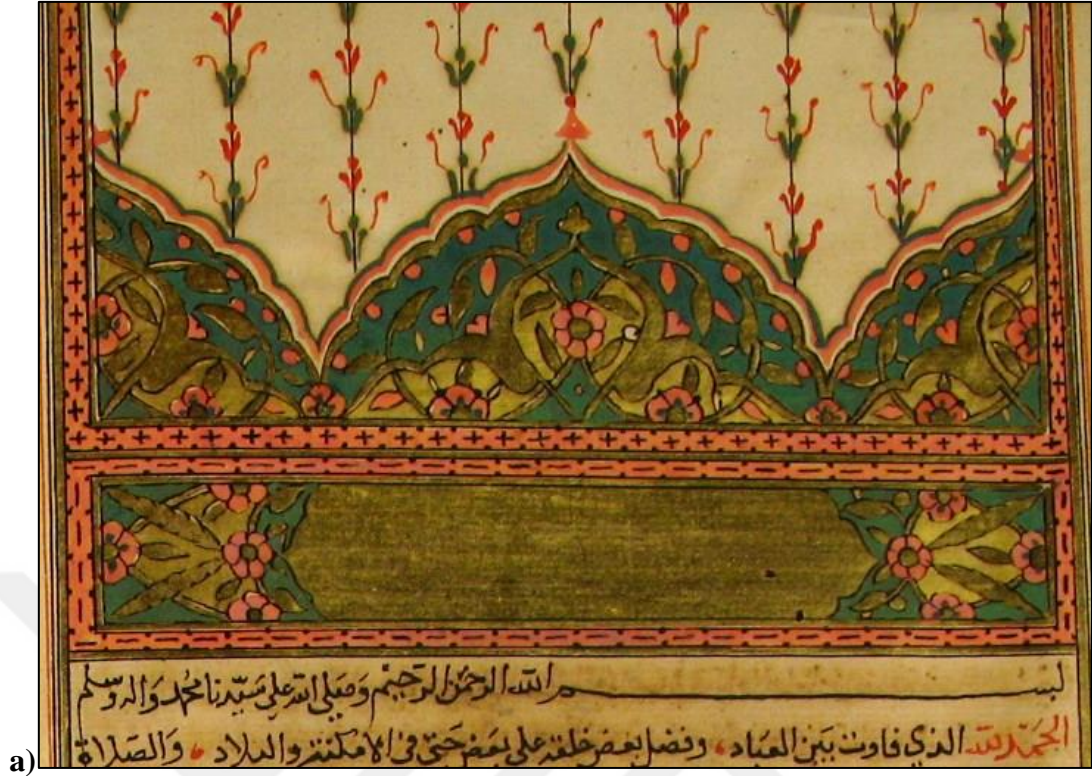 بسم الله الرحمن الرحيم وصلى الله على سيدنا محمد واله وسلم
الحمد لله الذي فاوت بين العباد، وفضل بعض خلقه على بعض حتى في الامكنة والبلاد، والصلاة
a)